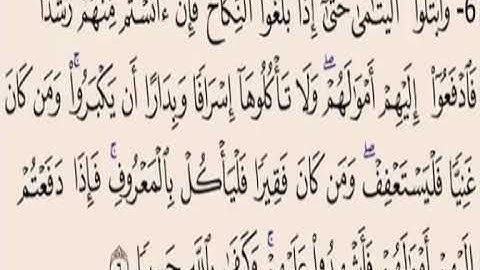 6- وَابْتَلُوا الْيَتَامَىٰ حَتَّىٰ إِذَا بَلَغُوا النِّكَاحَ فَإِنْ ءَانَسْتُم مِّنْهُمْ رُشْدًا
فَادْفَعُوٓا إِلَيْهِمْ أَمْوَٰلَهُمْ ۖ وَلَا تَأْكُلُوهَآ إِسْرَافًا وَبِدَارًا أَن يَكْبَرُوا ۚ وَمَن كَانَ
غَنِيًّا فَلْيَسْتَعْفِفْ ۖ وَمَن كَانَ فَقِيرًا فَلْيَأْكُلْ بِالْمَعْرُوفِ ۚ فَإِذَا دَفَعْتُمْ
إِلَيْهِمْ أَمْوَٰلَهُمْ فَأَشْهِدُوا عَلَيْهِمْ ۚ وَكَفَىٰ بِاللَّهِ حَسِيبًا ٦